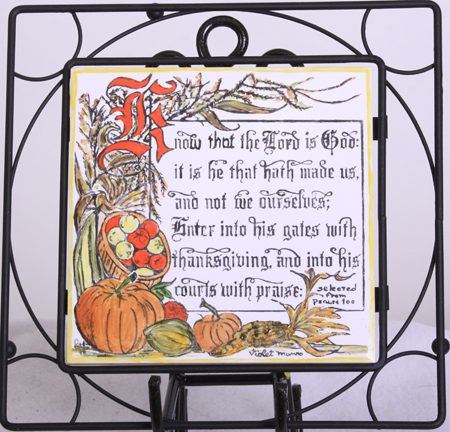 Know that the Lord is God:
it is he that hath made us,
and not we ourselves;
Enter into his gates with
thanksgiving, and into his
courts with praise:
selected
from
Psalm 100
Violet Munro